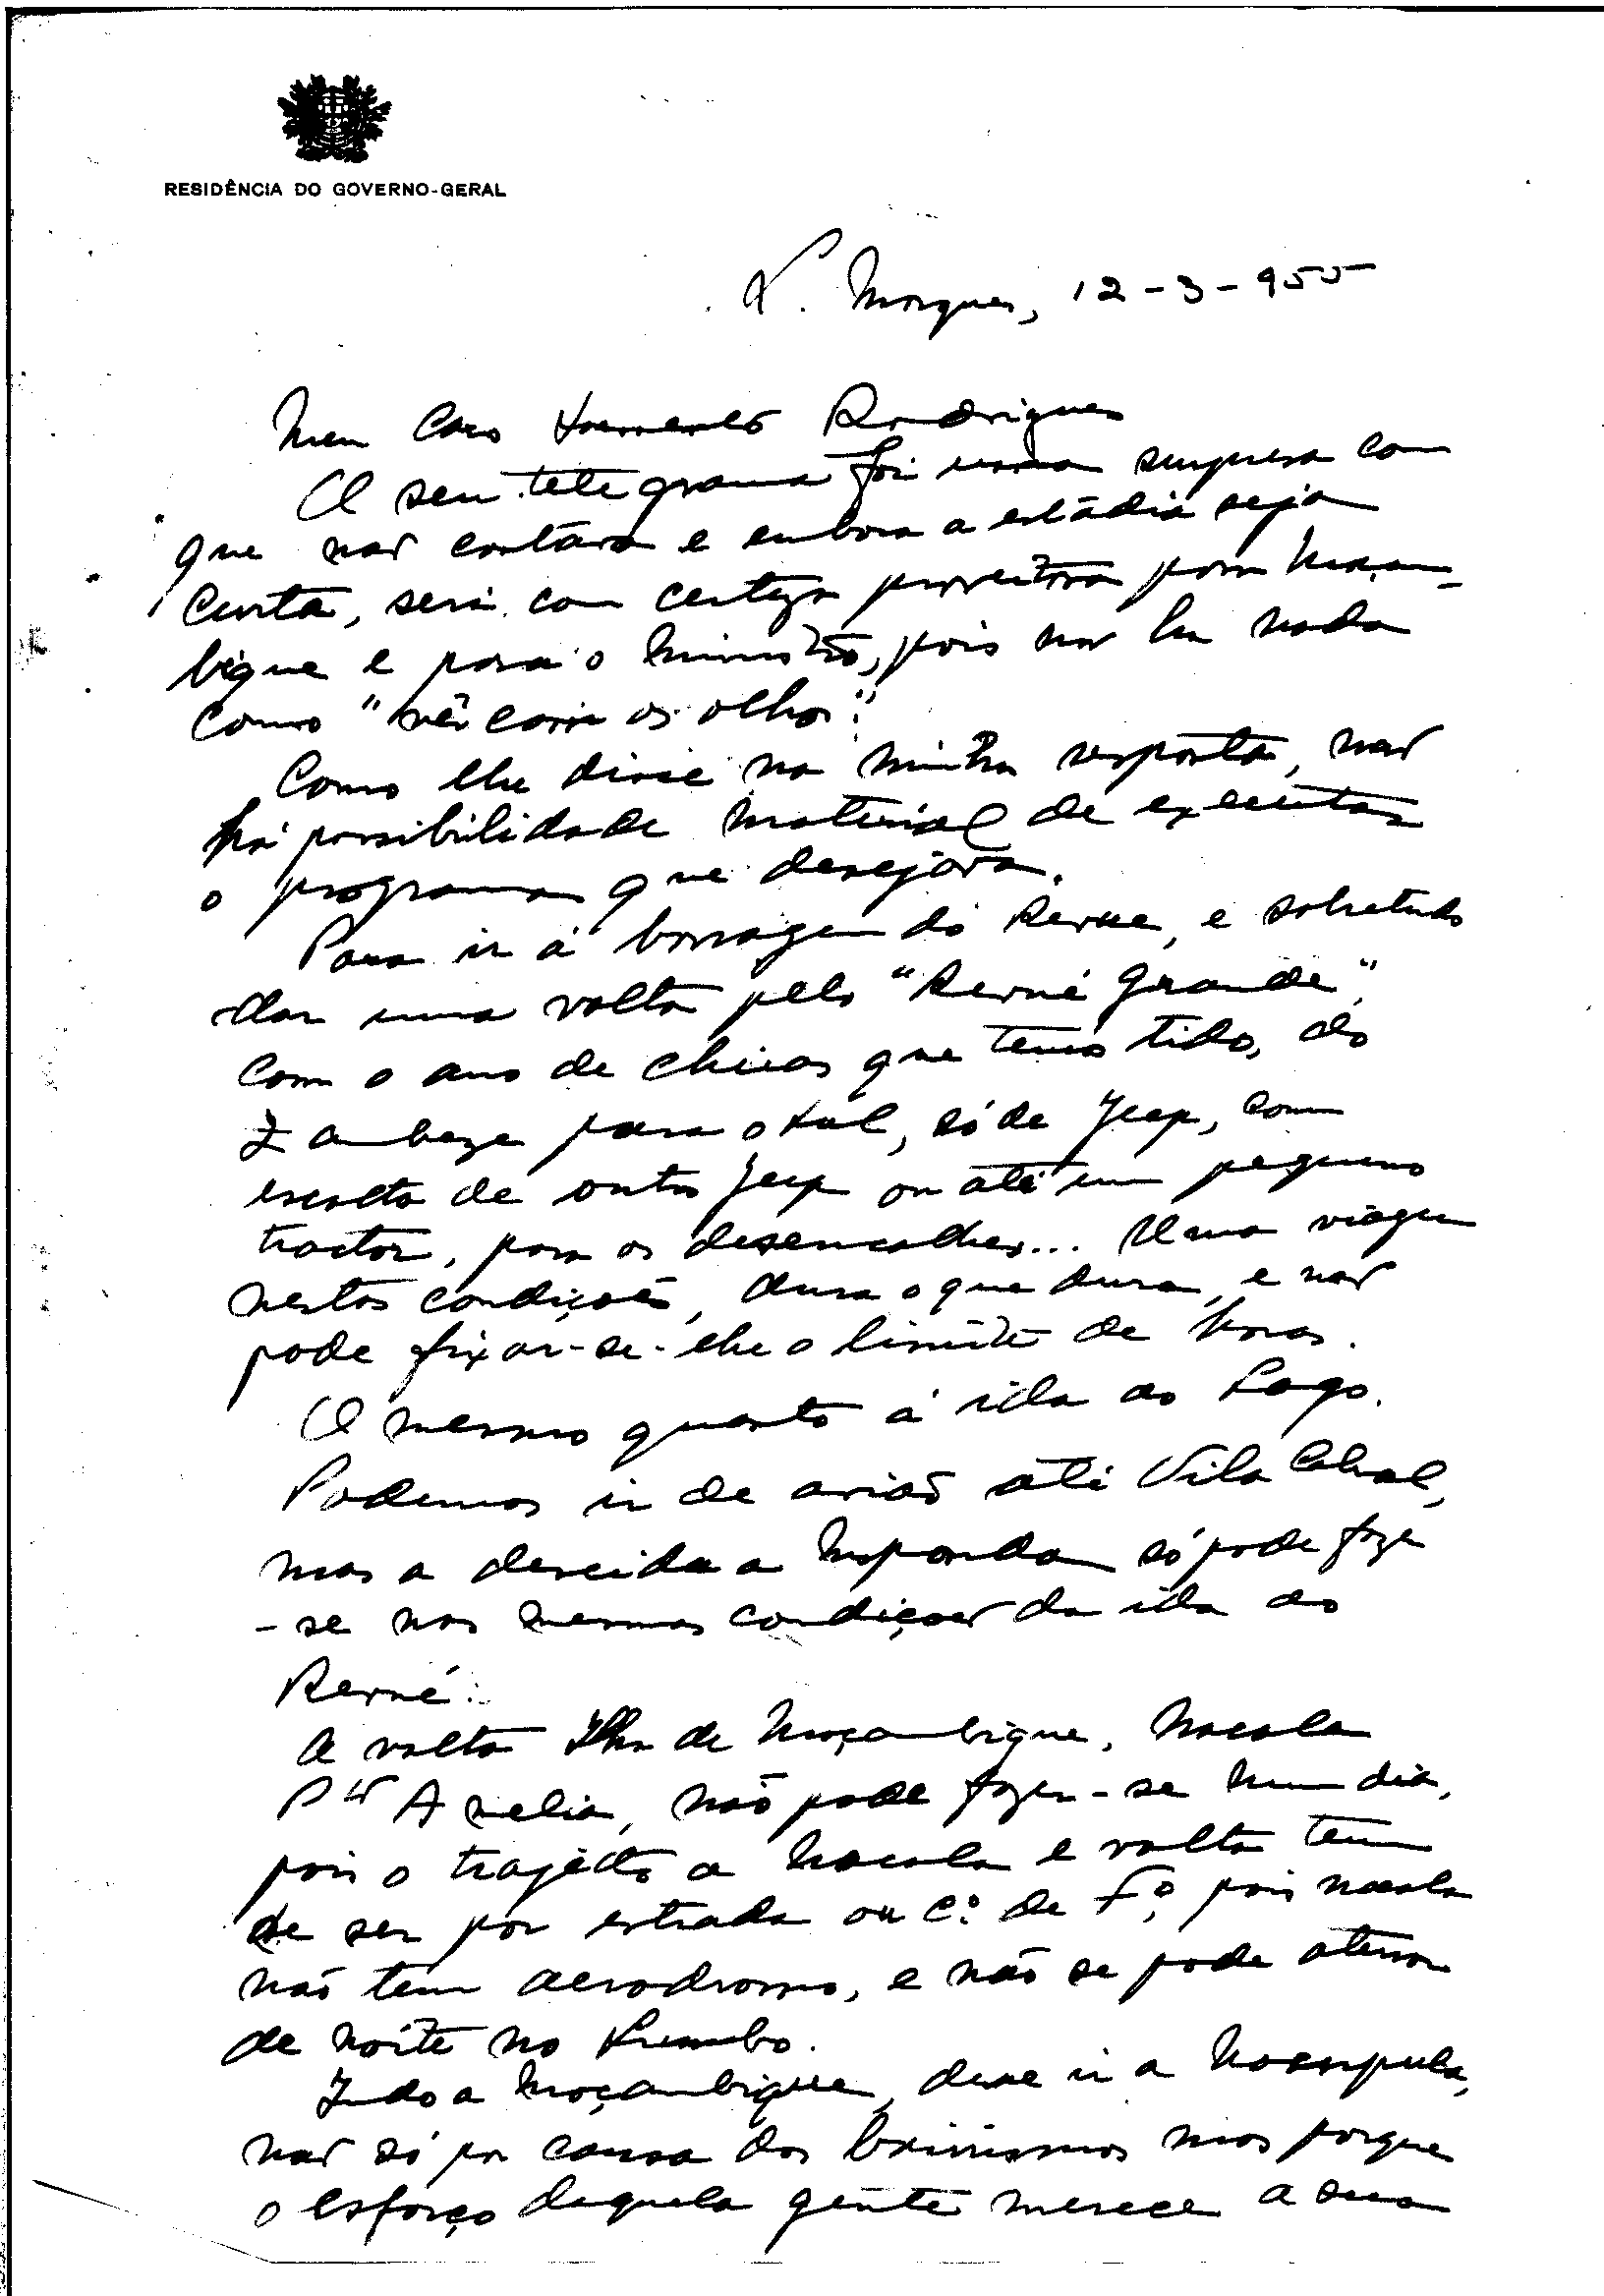 RESIDÊNCIA DO GOVERNO-GERAL
L. Marques, 12-3-955
Meu Caro Sarmento Rodrigues
O seu telegrama foi uma surpresa com
que não contava e embora a estadia seja
curta, será com certeza proveitosa para Moçam-
bique e para o Ministro, pois não há nada
como "vêr com os olhos".
Como lhe disse na minha resposta, não
há possibilidade material de executar
o programa que desejava.
Para ir á barragem do Revue, e sobretudo
dar uma volta pelo "Revué Grande",
com o ano de chuvas que temos tido, do
Zambeze para o Sul, só de Jeep, com
escolta de outro Jeep ou até um pequeno
tractor, para os desencalhes... Uma viagem
nestas condições, dura o que dura, e não
pode fixar-se-lhe o limite de horas.
O mesmo quanto á ida ao Lago.
Podemos ir de avião até Vila Cabral,
mas a descida a Meponda só pode fazer
-se nas mesmas condições da ida ao
Revué.
A volta Ilha de Moçambique, Nacala
Pto Amelia, não pode fazer-se num dia,
pois o trajécto a Nacala e volta tem
de ser por estrada ou C.º de F.º, pois Nacala
não tem aerodromo, e não se pode aterrar
de noite no Lumbo.
Indo a Moçambique, deve ir a Nampula,
não só por causa dos mas porque
o esforço daquela gente merece a sua